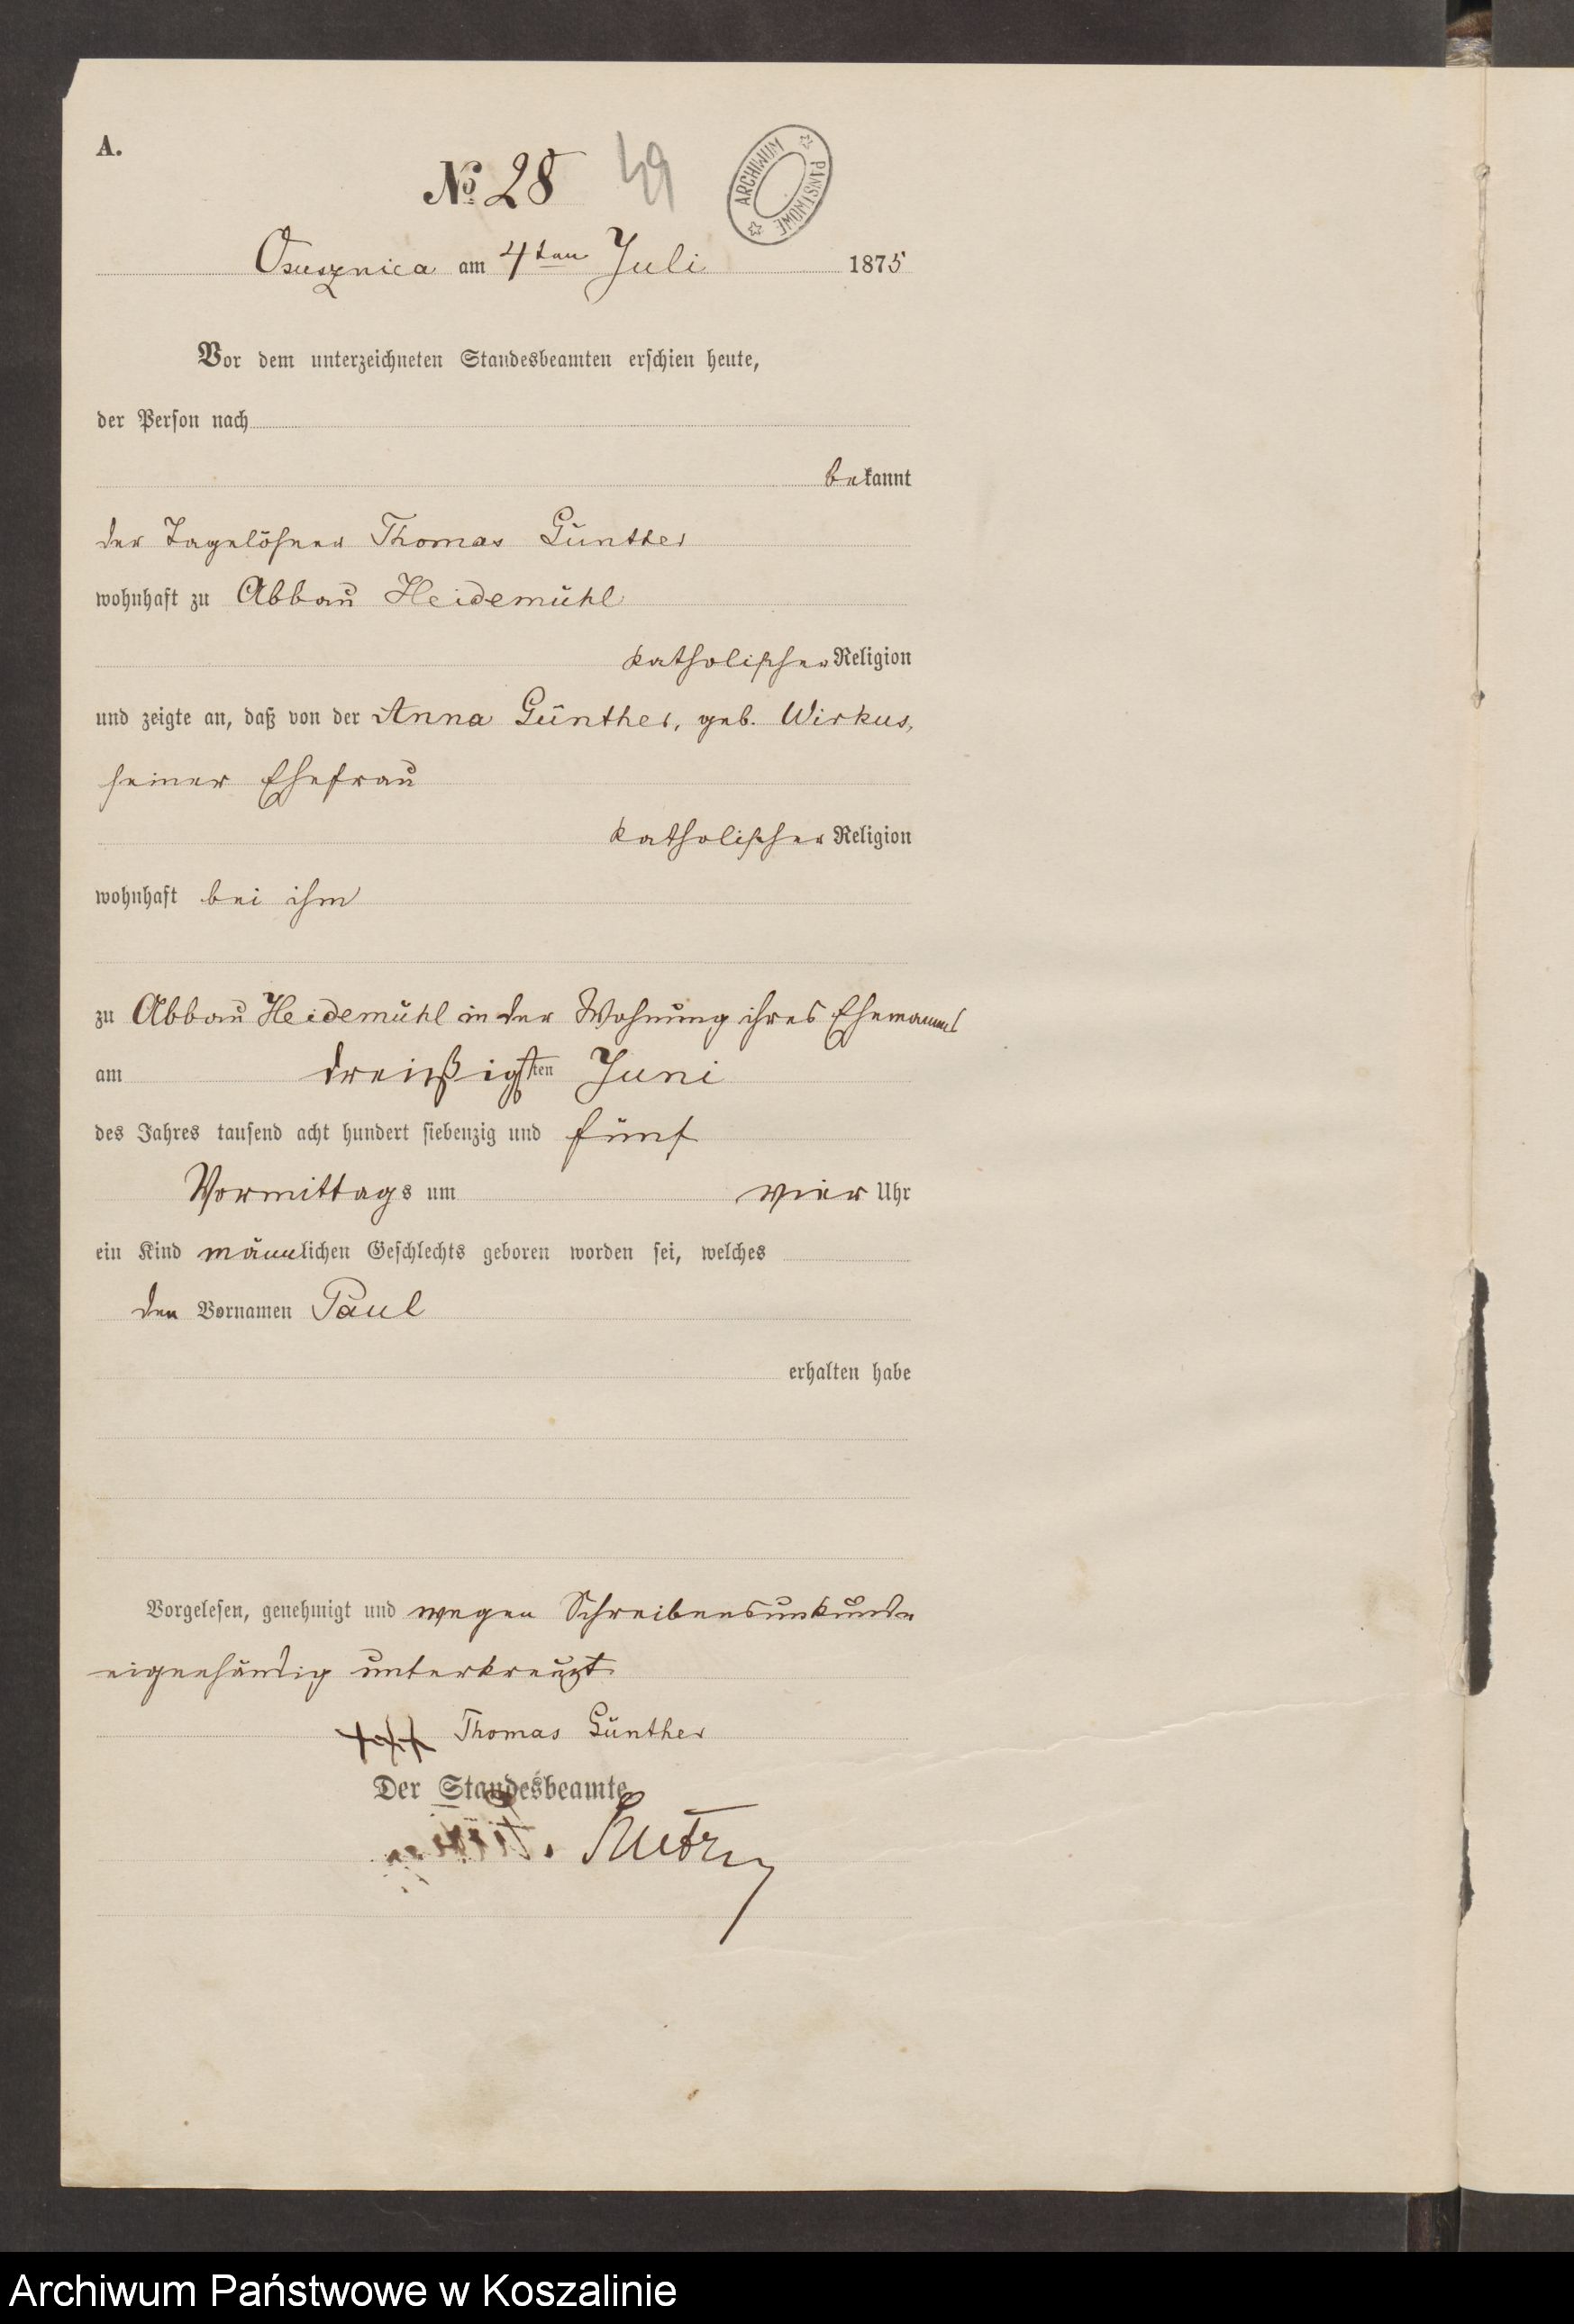 A.
No. 28 49
ARCHIWUM PAŃSTWOWE
Osusznica am 4ten Juli 1875
Vor dem unterzeichneten Standesbeamten erschien heute,
der Person nach
bekannt
der Tagelöhner Thomas Günther
wohnhaft zu Abbau Heidemühl
katholischer Religion
und zeigte an, daß von der Anna Günther, geb. Wirkus,
seiner Ehefrau
katholischer Religion
wohnhaft bei ihm
zu Abbau Heidemühl in der Wohnung ihres Ehemannes
am dreißigsten Juni
des Jahres tausend acht hundert siebenzig und fünf
Vormittags um vier Uhr
ein Kind männlichen Geschlechts geboren worden sei, welches
den Vornamen Paul
erhalten habe
Vorgelesen, genehmigt und wegen Schreibensunkunde
eigenhändig unterkreuzt
+++ Thomas Günther
Der Standesbeamte
Archiwum Państwowe w Koszalinie